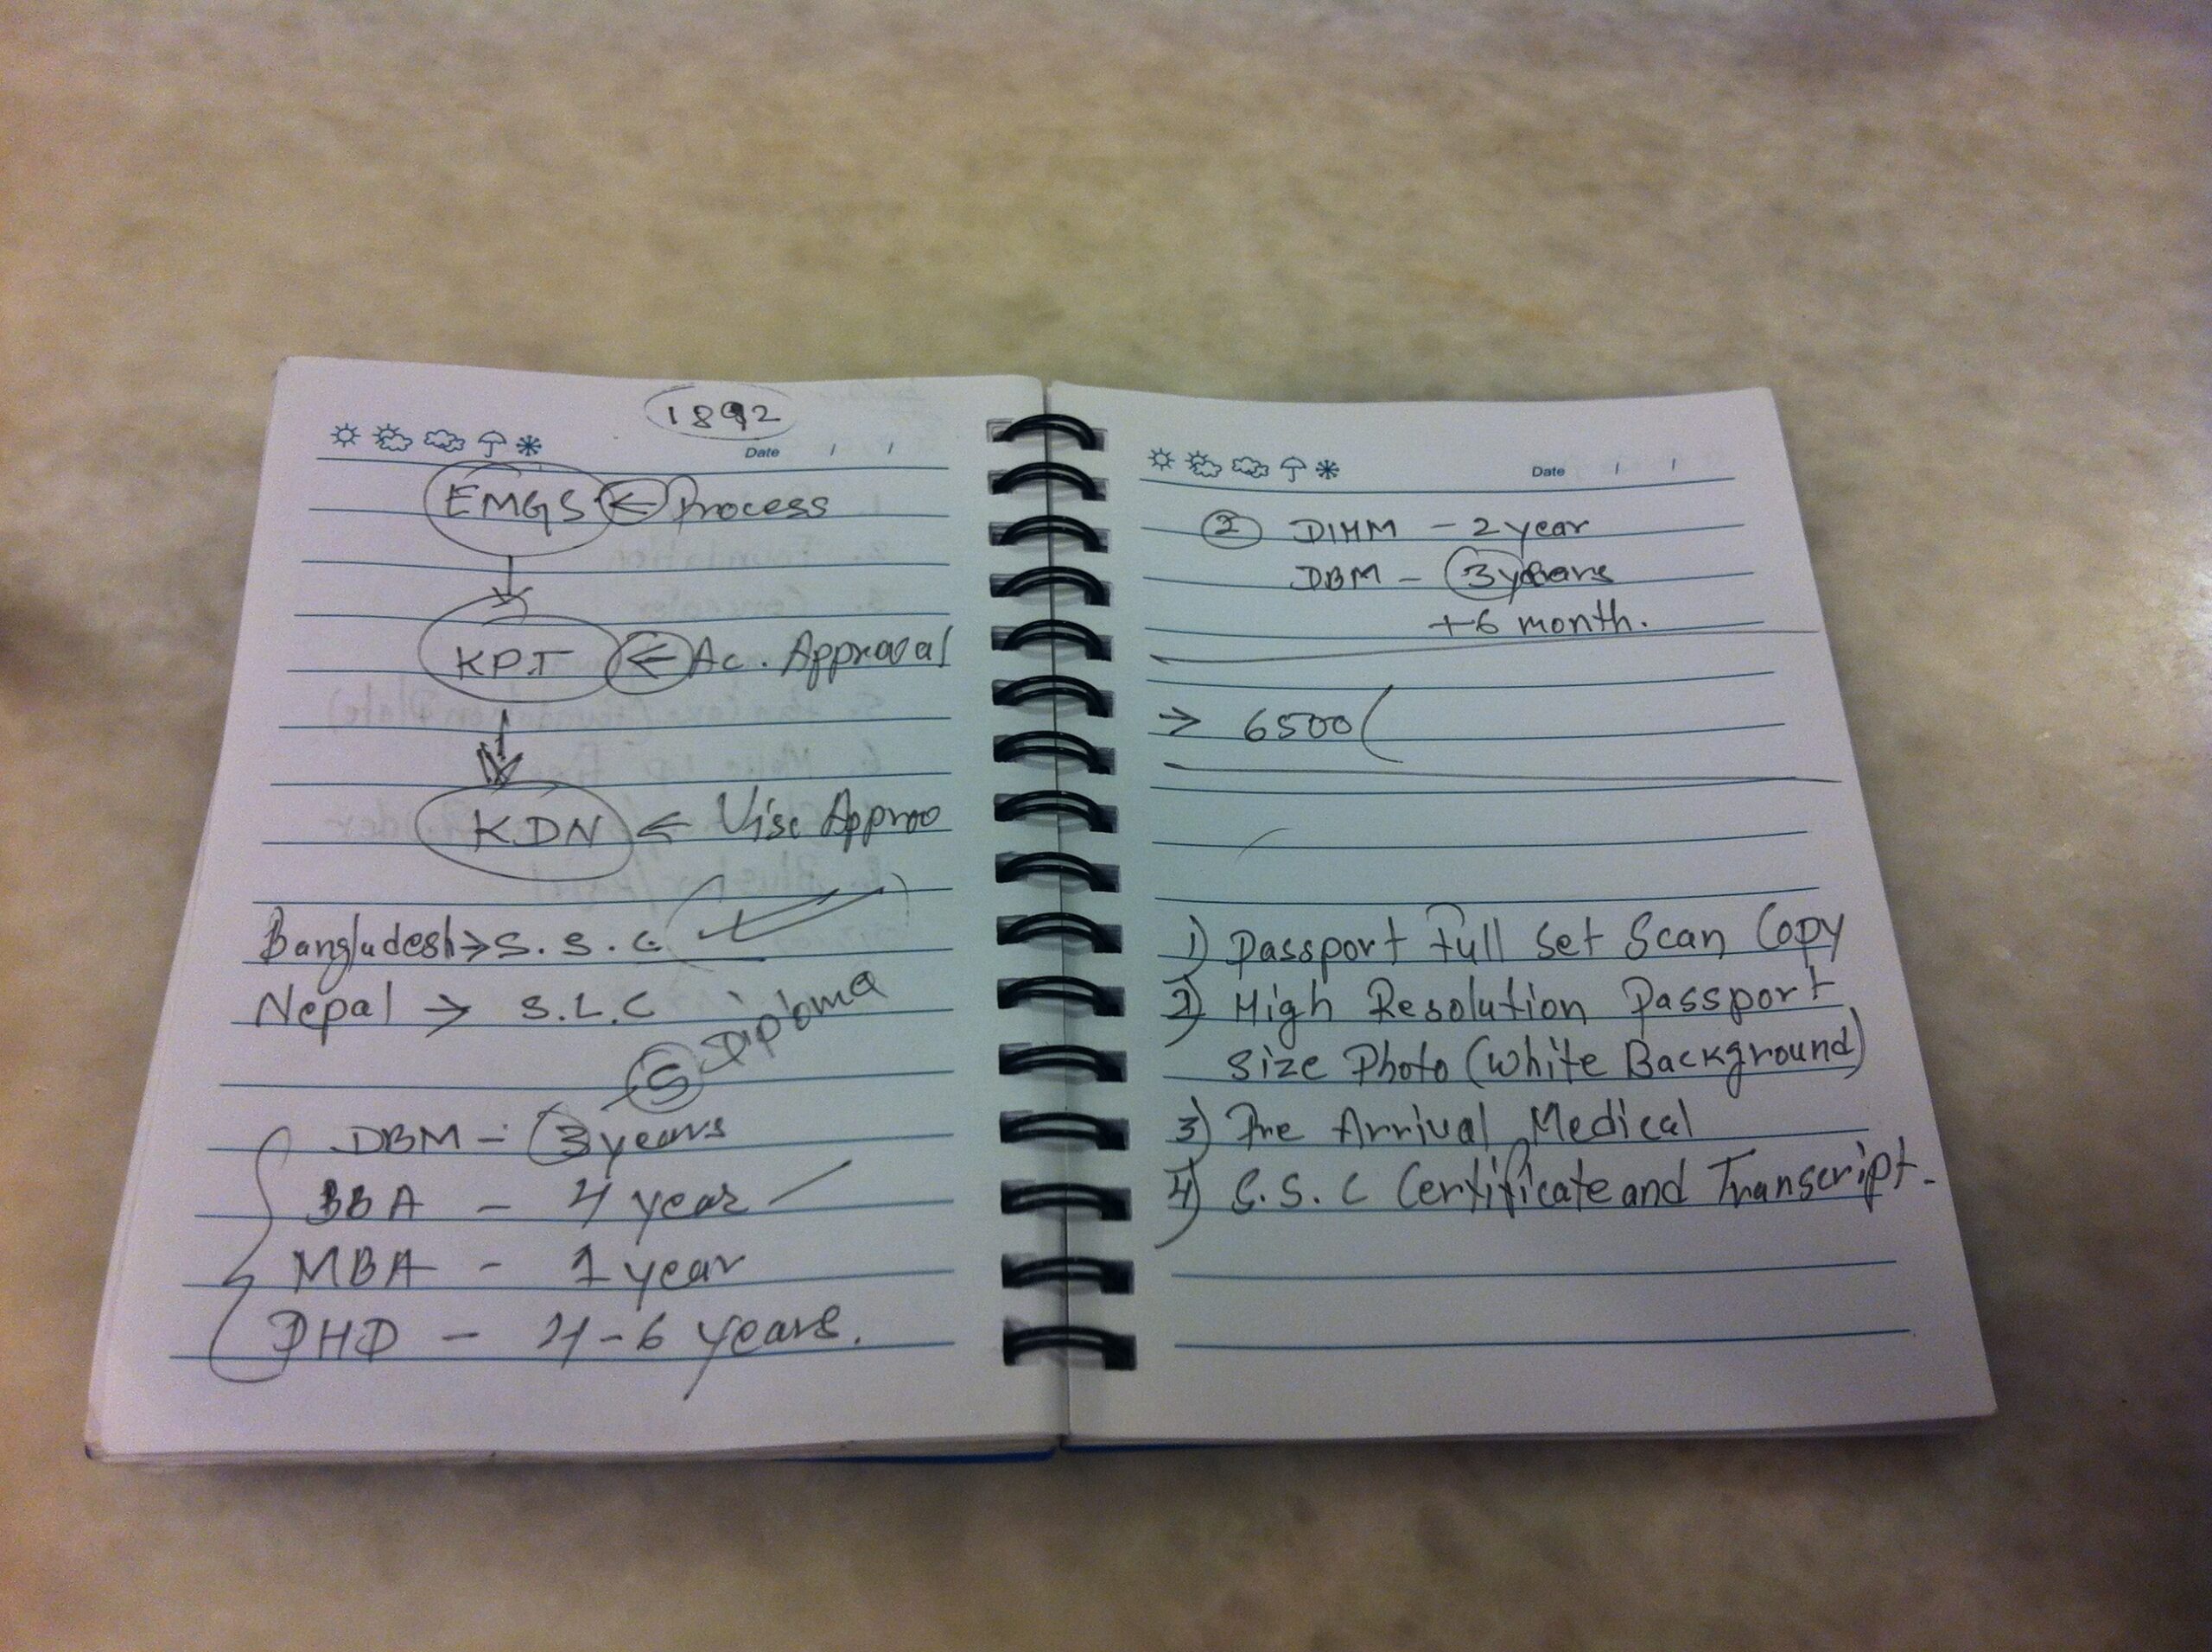 1892
Date / /
EMGS ← Process
KPT ← Ac. Approval
KDN ← Visa Approo
Bangladesh → S.S.C
Nepal → S.L.C
S Diploma
DBM - 3 years
BBA - 4 year
MBA - 1 year
PHD - 4-6 years.
Date / /
2 DIHM - 2 year
DBM - 3 years
+6 month.
→ 6500(
1) Passport Full Set Scan Copy
2) High Resolution Passport
Size Photo (White Background)
3) Pre Arrival Medical
4) S.S.C Certificate and Transcript.